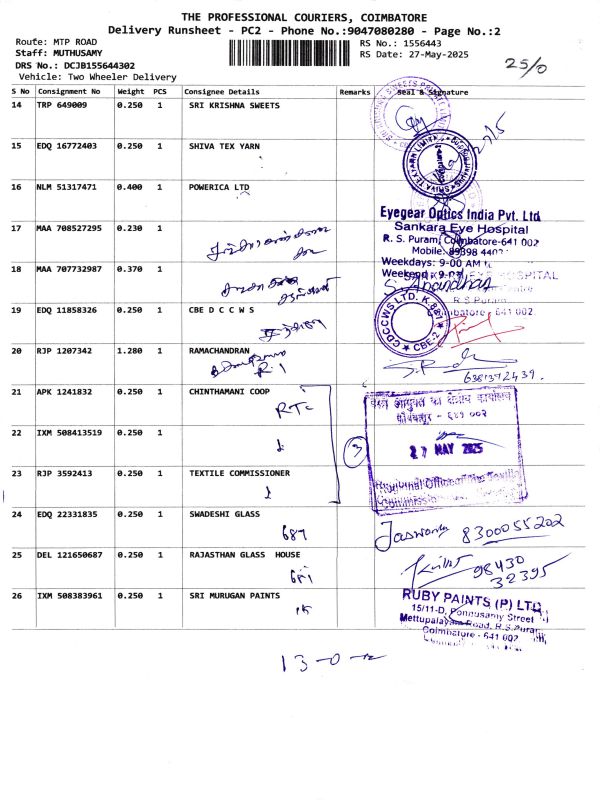 THE PROFESSIONAL COURIERS, COIMBATORE
Delivery Runsheet - PC2 - Phone No.:9047080280 - Page No.:2
Route: MTP ROAD
Staff: MUTHUSAMY
DRS No.: DCJB155644302
Vehicle: Two Wheeler Delivery
RS No.: 1556443
RS Date: 27-May-2025
25/0
S No Consignment No Weight PCS Consignee Details Remarks Seal & Signature
14 TRP 649009 0.250 1 SRI KRISHNA SWEETS
15 EDQ 16772403 0.250 1 SHIVA TEX YARN
16 NLM 51317471 0.400 1 POWERICA LTD
Eyegear Optics India Pvt. Ltd
Sankara Eye Hospital
R. S. Puram, Coimbatore-641 002
Mobile:
Weekdays: 9-00 AM
17 MAA 708527295 0.230 1
18 MAA 707732987 0.370 1
R.S.Puram
19 EDQ 11858326 0.250 1 CBE D C C W S
CDCCWS LTD. K.881
CBE-2
20 RJP 1207342 1.280 1 RAMACHANDRAN
6381372439.
21 APK 1241832 0.250 1 CHINTHAMANI COOP
RTC
22 IXM 508413519 0.250 1
3
27 MAY 2025
23 RJP 3592413 0.250 1 TEXTILE COMMISSIONER
24 EDQ 22331835 0.250 1 SWADESHI GLASS
687
8300055202
25 DEL 121650687 0.250 1 RAJASTHAN GLASS HOUSE
681
98430
32395
26 IXM 508383961 0.250 1 SRI MURUGAN PAINTS
RUBY PAINTS (P) LTD
15/11-D, Ponnusamy Street
Mettupalayam Road, R.S.Puram
Coimbatore - 641 002
13-0-